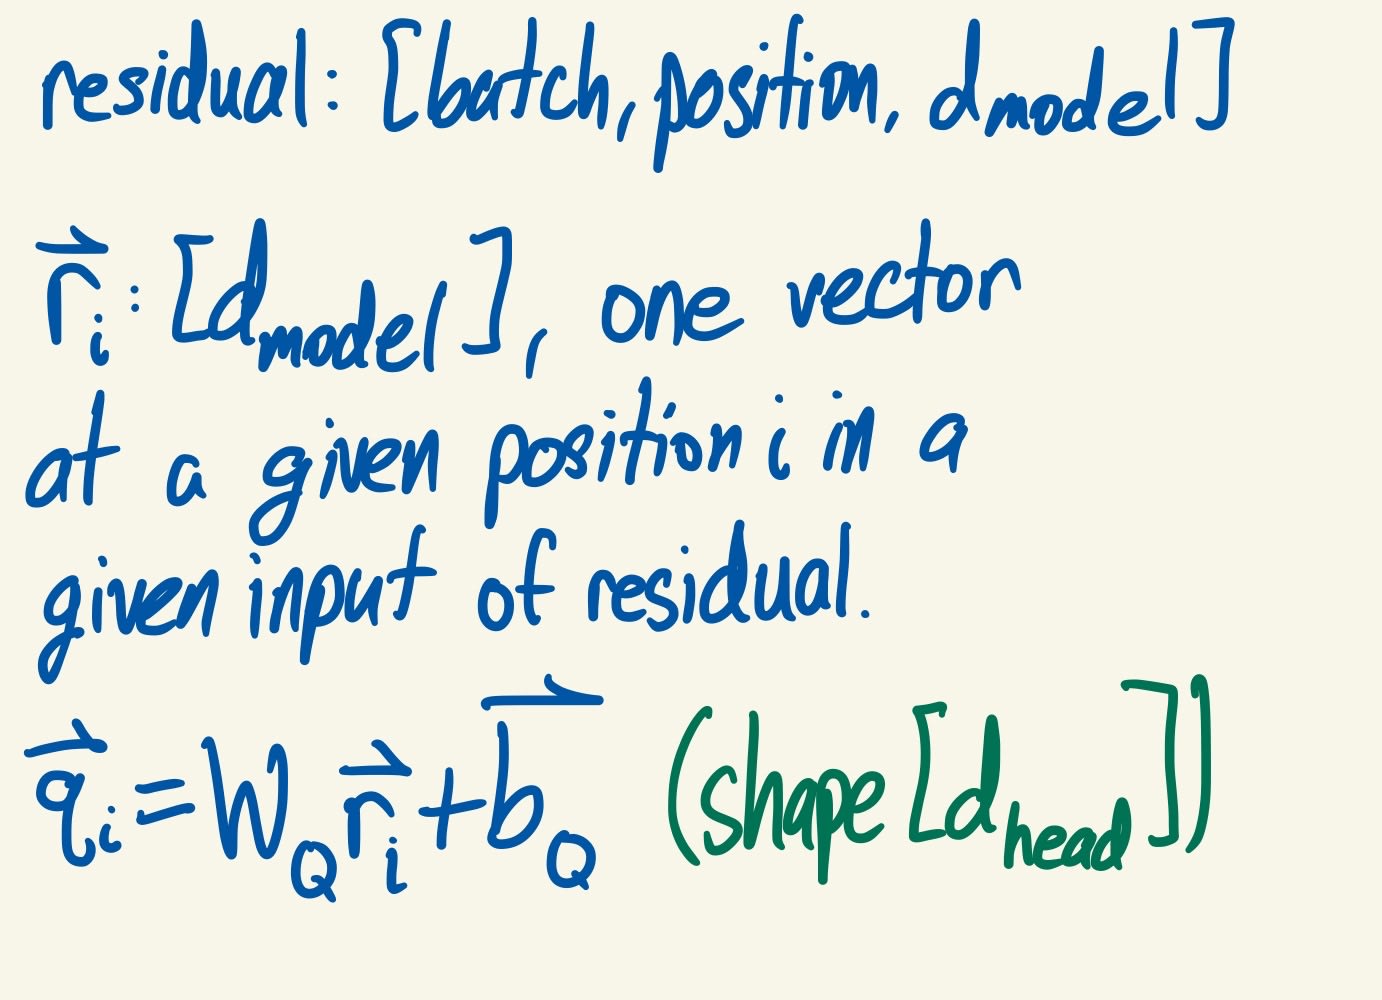 residual: [batch, position, d_model]
r⃗_i: [d_model], one vector
at a given position i in a
given input of residual.
q⃗_i = W_Q r⃗_i + b⃗_Q (shape [d_head])